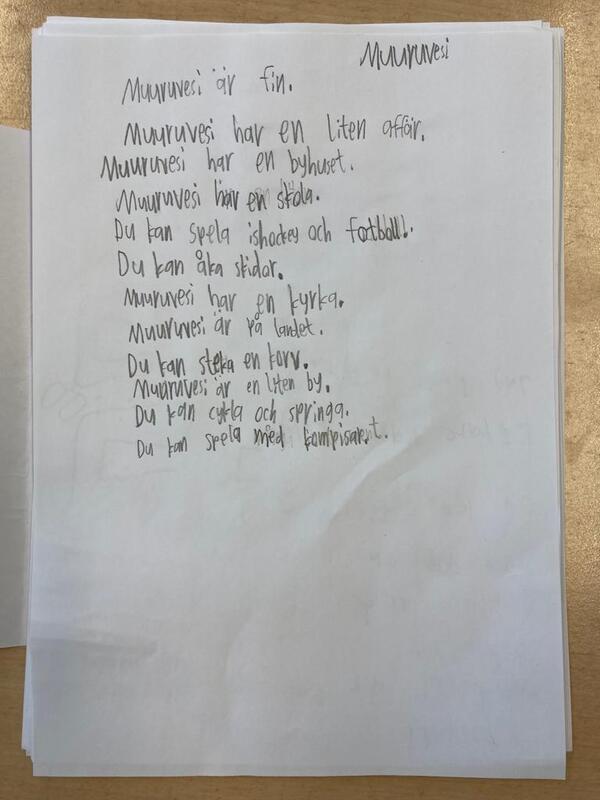 Muuruvesi
Muuruvesi är fin.
Muuruvesi har en liten affär.
Muuruvesi har en byhuset.
Muuruvesi har en skola.
Du kan spela ishockey och fotboll.
Du kan åka skidor.
Muuruvesi har en kyrka.
Muuruvesi är på landet.
Du kan steka en korv.
Muuruvesi är en liten by.
Du kan cykla och springa.
Du kan spela med kompisart.